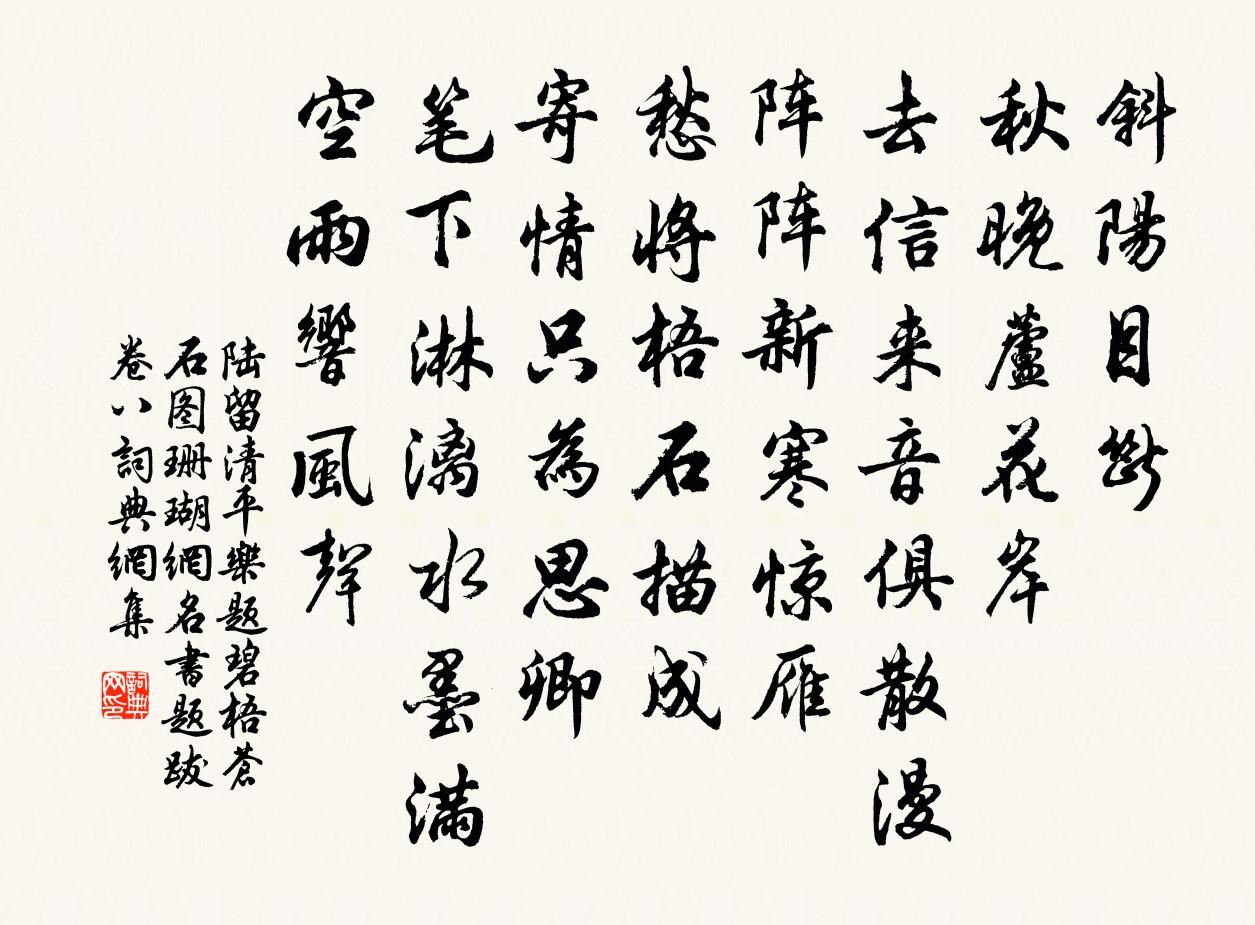 斜陽目斷
秋晚蘆花岸
去信来音俱散漫
阵阵新寒惊雁
愁將梧石描成
寄情只為思卿
笔下淋漓水墨滿
空雨響風聲
陆留清平樂题碧梧蒼
石图珊瑚網名書题跋
卷八詞典網集
詞典网印